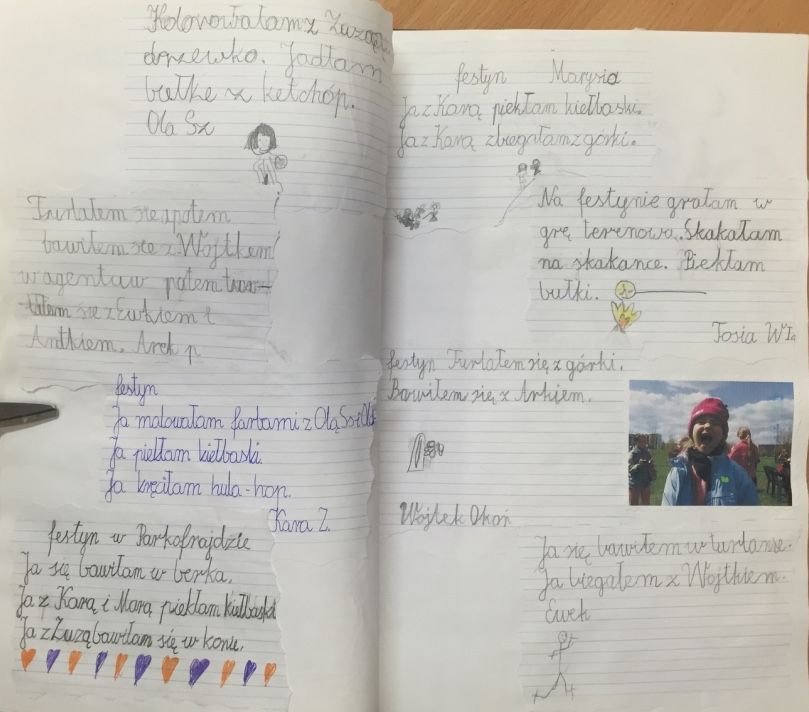 Kolorowałam z Zuzą
drzewko. Jadłam
bułkę z ketchóp.
Ola Sz
Turlałem się apotem
bawiłem się z Wojtkem
w agentuw potem
się z Ewkiem i
Antkiem. Arek p
festyn
Ja malowałam farbami z Olą Sz i Olą
Ja piekłam kiełbaski.
Ja kręciłam hula-hop.
Kara Z.
festyn w Parkofrajdzie
Ja się bawiłam w berka.
Ja z Karą i Marą piekłam kiełbaski
Ja z Zuzą bawiłam się w konie.
festyn Marysia
Ja z Karą piekłam kiełbaski.
Ja z Karą zbiegałam z górki.
Na festynie grałam w
grę terenową. Skakałam
na skakance. Piekłam
bułki.
Tosia W
festyn Turlałem się z górki.
Bawiłem się z Arkiem.
Wojtek Okoń
Ja się bawiłem w turlanie.
Ja biegałem z Wojtkiem.
Ewek